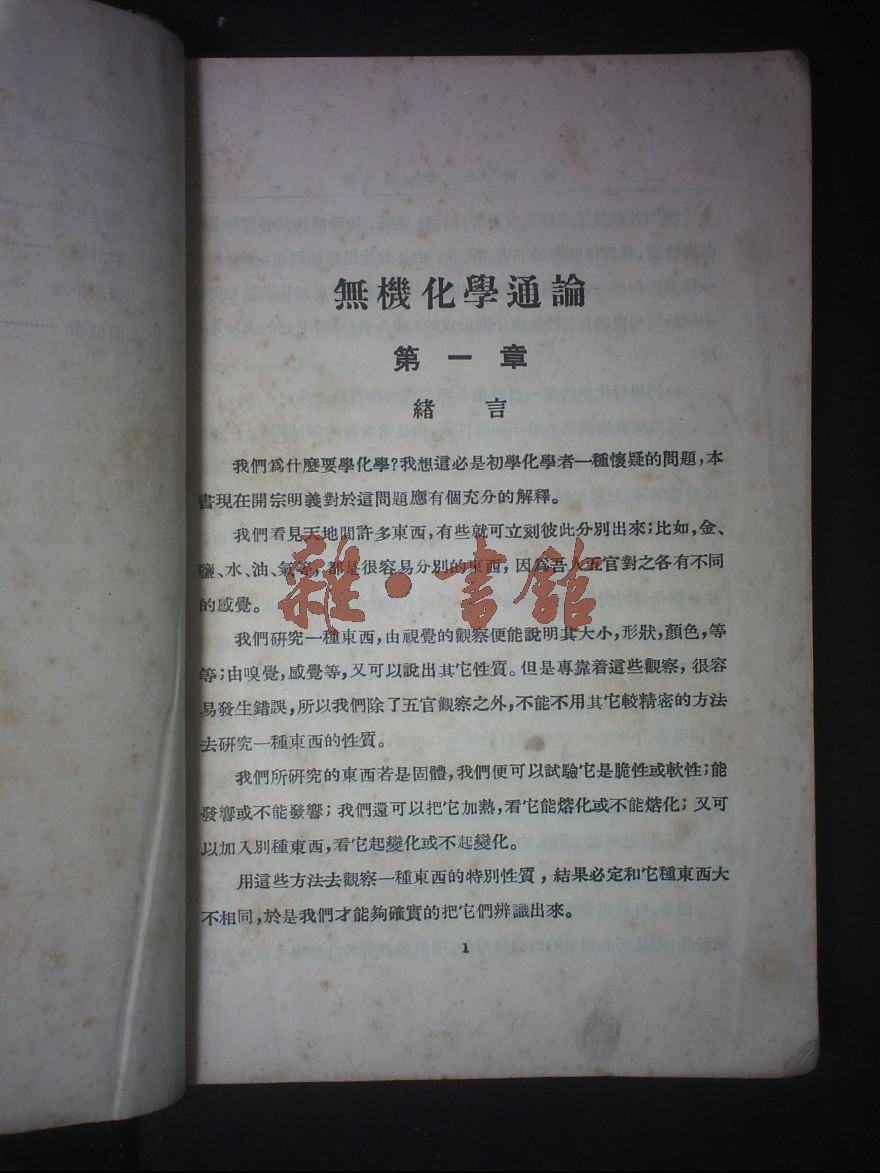 無機化學通論
第一章
緒言
我們爲什麼要學化學?我想這必是初學化學者一種懷疑的問題,本
書現在開宗明義對於這問題應有個充分的解釋。
我們看見天地間許多東西,有些就可立刻彼此分別出來;比如,金、
鹽、水、油、氣等,都是很容易分別的東西,因爲吾人五官對之各有不同
的感覺。
我們研究一種東西,由視覺的觀察便能說明其大小,形狀,顏色,等
等;由嗅覺,感覺等,又可以說出其它性質。但是專靠着這些觀察,很容
易發生錯誤,所以我們除了五官觀察之外,不能不用其它較精密的方法
去研究一種東西的性質。
我們所研究的東西若是固體,我們便可以試驗它是脆性或軟性;能
發響或不能發響;我們還可以把它加熱,看它能熔化或不能熔化;又可
以加入別種東西,看它起變化或不起變化。
用這些方法去觀察一種東西的特別性質,結果必定和它種東西大
不相同,於是我們才能夠確實的把它們辨識出來。
1
雜·書館